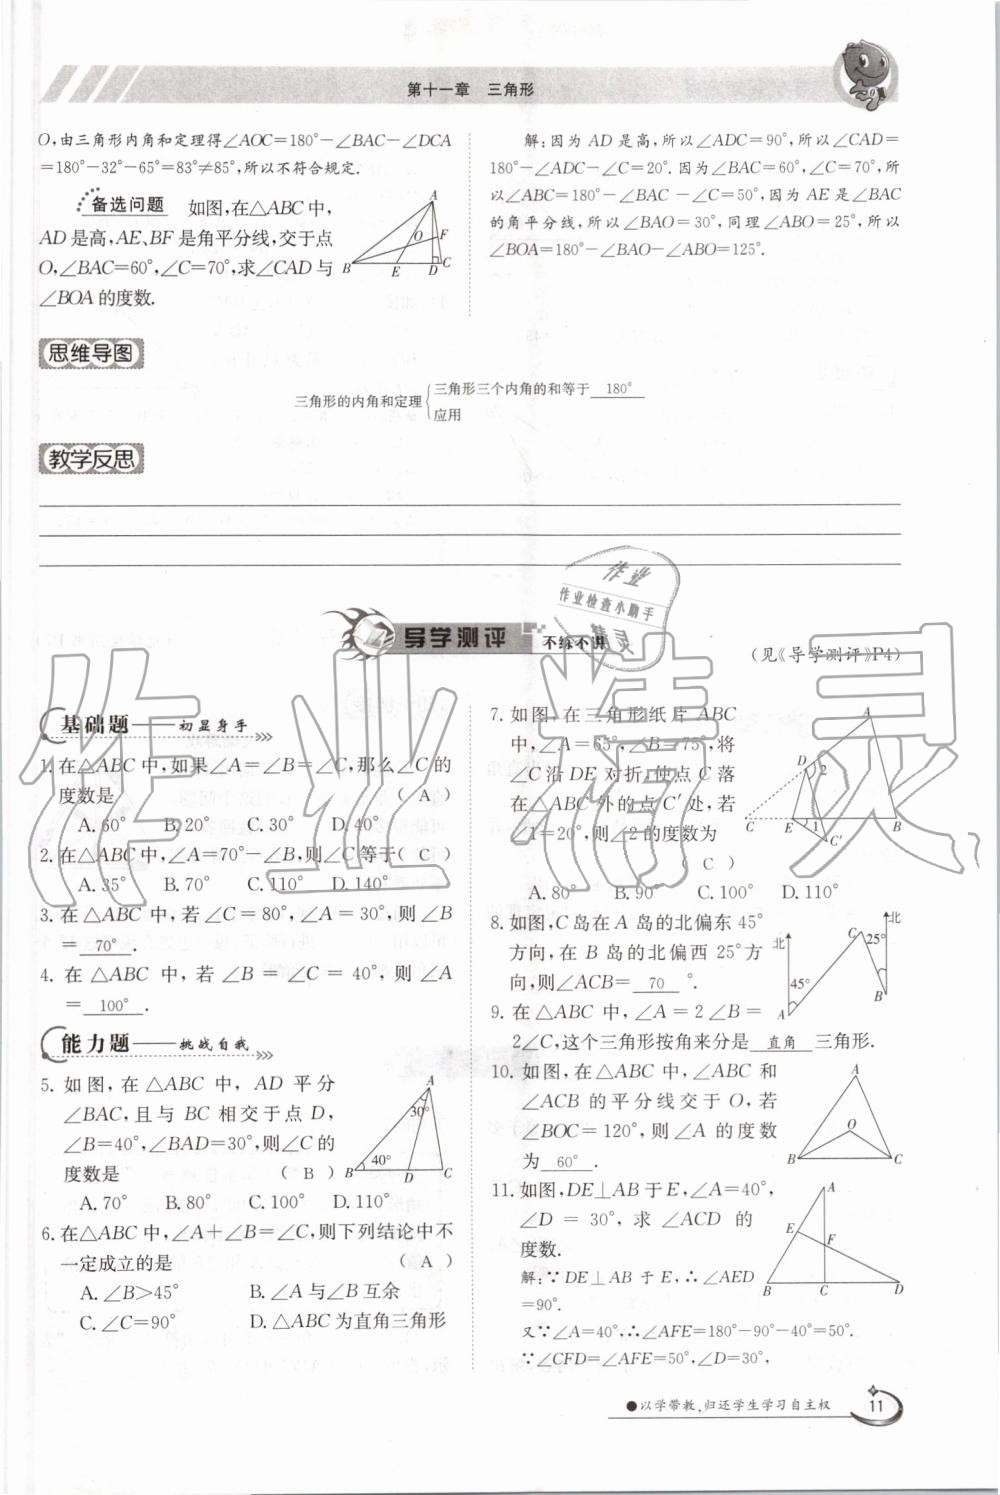 第十一章 三角形
O,由三角形内角和定理得∠AOC=180°-∠BAC-∠DCA
=180°-32°-65°=83°≠85°,所以不符合规定.
备选问题 如图,在△ABC中,
AD是高,AE、BF是角平分线,交于点
O,∠BAC=60°,∠C=70°,求∠CAD与
∠BOA的度数.
A
O F
B E D C
解:因为AD是高,所以∠ADC=90°,所以∠CAD=
180°-∠ADC-∠C=20°.因为∠BAC=60°,∠C=70°,所
以∠ABC=180°-∠BAC-∠C=50°,因为AE是∠BAC
的角平分线,所以∠BAO=30°,同理∠ABO=25°,所以
∠BOA=180°-∠BAO-∠ABO=125°.
思维导图
三角形的内角和定理
三角形三个内角的和等于 180°
应用
教学反思
导学测评 不练不讲
作业
作业检查小助手
精灵
(见《导学测评》P4)
作业精灵
基础题——初显身手
1.在△ABC中,如果∠A=∠B=∠C,那么∠C的
度数是 ( A )
A.60° B.20° C.30° D.40°
2.在△ABC中,∠A=70°-∠B,则∠C等于( C )
A.35° B.70° C.110° D.140°
3.在△ABC中,若∠C=80°,∠A=30°,则∠B
= 70° .
4.在△ABC中,若∠B=∠C=40°,则∠A
= 100° .
能力题——挑战自我
5.如图,在△ABC中,AD平分
∠BAC,且与BC相交于点D,
∠B=40°,∠BAD=30°,则∠C的
度数是 ( B )
A
30°
40°
B D C
A.70° B.80° C.100° D.110°
6.在△ABC中,∠A+∠B=∠C,则下列结论中不
一定成立的是 ( A )
A.∠B>45° B.∠A与∠B互余
C.∠C=90° D.△ABC为直角三角形
7.如图,在三角形纸片ABC
中,∠A=65°,∠B=75°,将
∠C沿DE对折,使点C落
在△ABC外的点C′处,若
∠1=20°,则∠2的度数为
( C )
A
D 2
C E 1 B
C′
A.80° B.90° C.100° D.110°
8.如图,C岛在A岛的北偏东45°
方向,在B岛的北偏西25°方
向,则∠ACB= 70 °.
北
北
C 25°
45°
B
A
9.在△ABC中,∠A=2∠B=
2∠C,这个三角形按角来分是 直角 三角形.
10.如图,在△ABC中,∠ABC和
∠ACB的平分线交于O,若
∠BOC=120°,则∠A的度数
为 60° .
A
O
B C
11.如图,DE⊥AB于E,∠A=40°,
∠D=30°,求∠ACD的
度数.
A
E
F
B C D
解:∵DE⊥AB于E,∴∠AED
=90°.
又∵∠A=40°,∴∠AFE=180°-90°-40°=50°.
∵∠CFD=∠AFE=50°,∠D=30°,
●以学带教,归还学生学习自主权
11